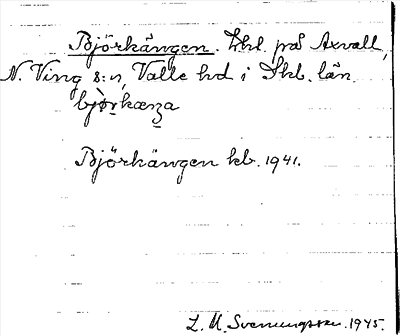 Björkängen. Lhl. på Axvall,
N. Ving s:n, Valle hd i Skbl. län.
bjò̀rkæŋa
Björkängen kb. 1941.
L. M. Svenungsson. 1945.